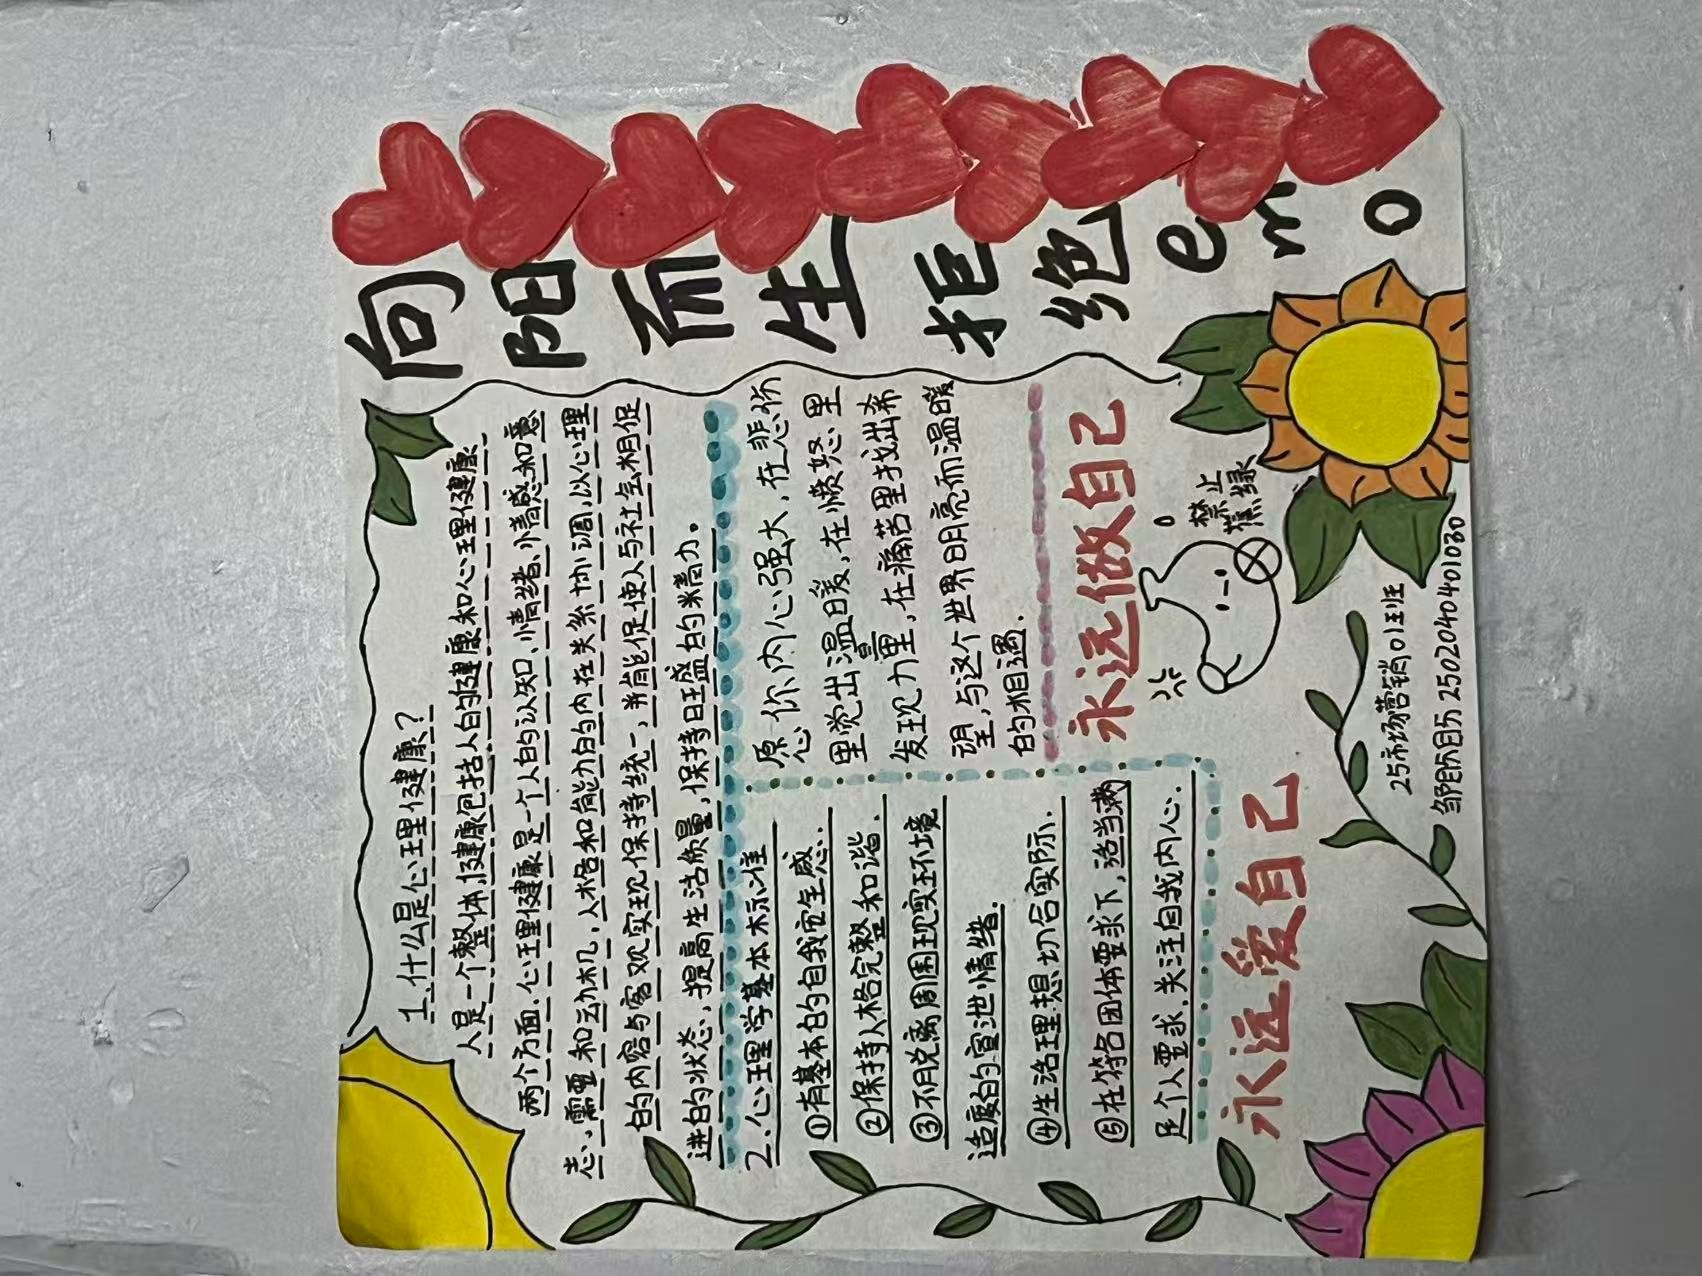 向阳而生 拒绝 emo
1、什么是心理健康?
人是一个整体,健康包括人的健康和心理健康
两个方面.心理健康是一个人的认知、情绪、情感和意
志、需要和动机,人格和能力的内在关系协调,以心理
的内容与客观实现保持统一,并能促使人与社会相促
进的状态,提高生活质量,保持旺盛的精力.
2、心理学基本标准
①有基本的自我安全感.
②保持人格完整和谐.
③不脱离周围现实环境
适度的宣泄情绪.
④生活理想切合实际.
⑤在符合团体要求下,适当满
足个人要求.关注自我内心.
愿你内心强大,在悲伤
里觉出温暖,在愤怒里
发现力量,在痛苦里找出希
望,与这个世界明亮而温暖
的相遇.
永远做自己
禁止
蕉绿
永远爱自己
25市场营销01班
2502040401030